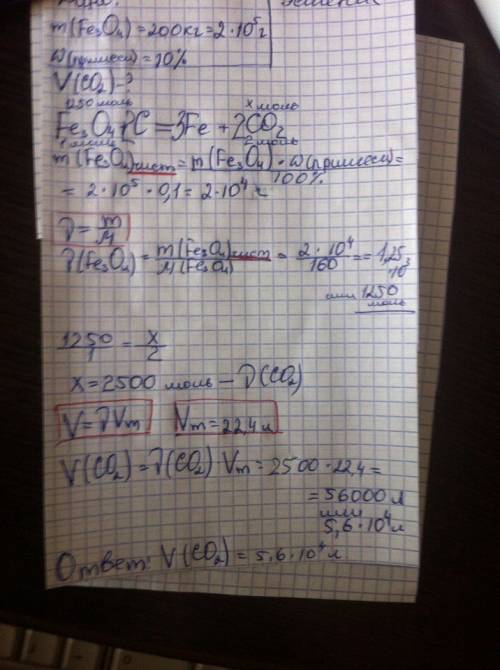 m(Fe₃O₄)=200кг=2·10⁵г
ω(примеси)=10%
V(CO₂)-?
1250 моль x моль
Fe₃O₄+2C=3Fe+2CO₂
1 моль 2 моль
m(Fe₃O₄)чист=m(Fe₃O₄)·ω(примеси)/100%=
=2·10⁵·0,1=2·10⁴г
ν=m/M
ν(Fe₃O₄)=m(Fe₃O₄)чист/M(Fe₃O₄)=2·10⁴/160==1,25·10³
или 1250 моль
1250/1=x/2
x=2500 моль-ν(CO₂)
V=νVm Vm=22,4л
V(CO₂)=ν(CO₂) Vm=2500·22,4=
=56000л
или
5,6·10⁴л
Ответ: V(CO₂)=5,6·10⁴л